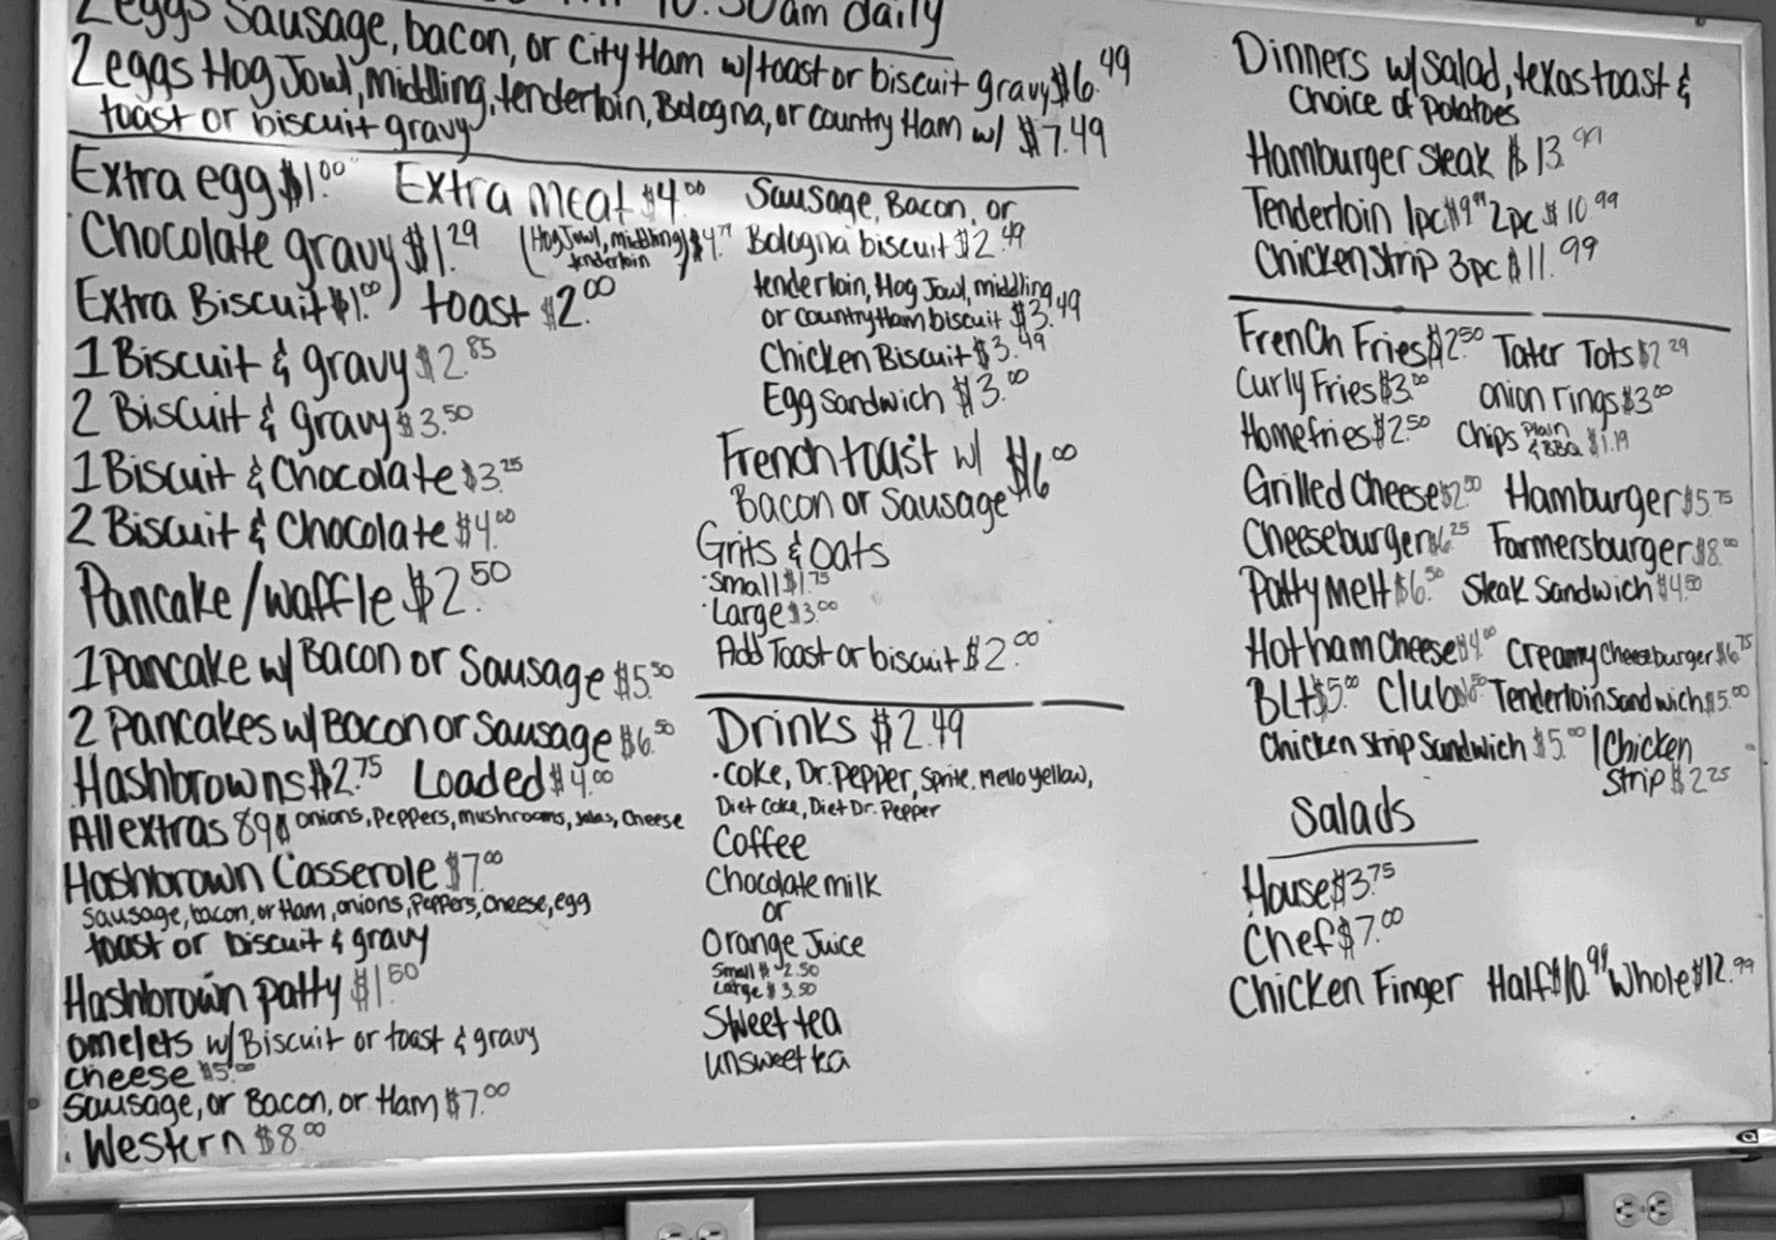 10:30am daily
2eggs Sausage, bacon, or City Ham w/toast or biscuit gravy $6.49
2eggs Hog Jowl, middling, tenderloin, Bologna, or country Ham w/ $7.49
toast or biscuit gravy
Extra egg $1.00 Extra meat $4.00
Chocolate gravy $1.29 (Hog Jowl, middling) $4.
tenderloin
Extra Biscuit $1.00 toast $2.00
1 Biscuit & gravy $2.85
2 Biscuit & gravy $3.50
1 Biscuit & Chocolate $3.25
2 Biscuit & Chocolate $4.00
Pancake/waffle $2.50
1 Pancake w/ Bacon or Sausage $5.50
2 Pancakes w/ Bacon or Sausage $6.50
Hashbrowns $2.75 Loaded $4.00
All extras 89¢ onions, Peppers, mushrooms, Jalas, Cheese
Hashbrown Casserole $7.00
Sausage, bacon, or Ham, onions, Peppers, Cheese, egg
toast or biscuit & gravy
Hashbrown patty $1.50
omelets w/ Biscuit or toast & gravy
cheese $5.00
Sausage, or Bacon, or Ham $7.00
. Western $8.00
Sausage, Bacon, or
Bologna biscuit $2.49
tenderloin, Hog Jowl, middling
or country Ham biscuit $3.49
Chicken Biscuit $3.49
Egg Sandwich $3.00
French toast w/ $6.00
Bacon or Sausage
Grits & Oats
·Small $1.75
·Large $3.00
Add Toast or biscuit $2.00
Drinks $2.49
·Coke, Dr. Pepper, Sprite, Mello Yellow,
Diet Coke, Diet Dr. Pepper
Coffee
Chocolate milk
or
Orange Juice
Small $ 2.50
Large $ 3.50
Sweet tea
unsweet tea
Dinners w/ salad, texas toast &
Choice of Potatoes
Hamburger Steak $13.99
Tenderloin 1pc $9.99 2pc $10.99
Chicken Strip 3pc $11.99
French Fries $2.50 Tater Tots $2.29
Curly Fries $3.00 Onion rings $3.00
Homefries $2.50 Chips Plain & BBQ $1.19
Grilled Cheese $2.50 Hamburger $5.75
Cheeseburger $6.25 Farmersburger $8.00
Patty Melt $6.50 Steak Sandwich $4.50
Hot ham Cheese $4.00 Creamy Cheeseburger $6.75
BLT $5.00 Club Tenderloin Sandwich $5.00
Chicken Strip Sandwich $5.00 1 Chicken
Strip $2.25
Salads
House $3.75
Chef $7.00
Chicken Finger Half $10.99 Whole $12.99